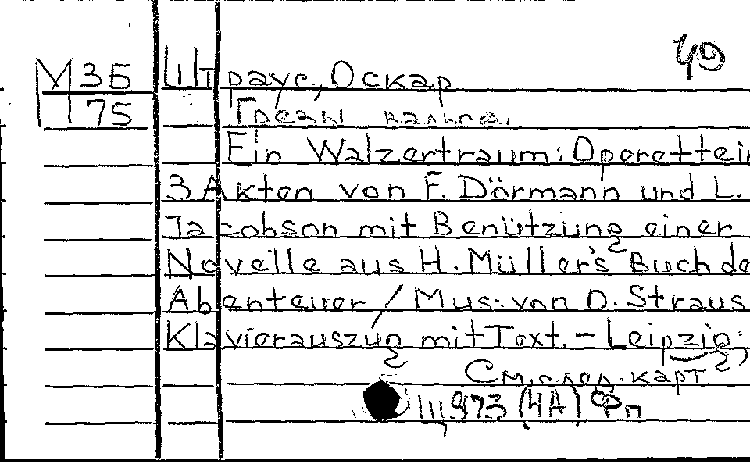 49
М36 Штраус, Оскар
75 Грезы вальса.
Ein Walzertraum: Operette in
3 Akten von F. Dörmann und L.
Jacobson mit Benützung einer
Novelle aus H. Müller's Buch de
Abenteuer / Mus. von O. Straus
Klavierauszug mit Text. - Leipzig:
См. след. карт
Щ 973 (4А) Фп